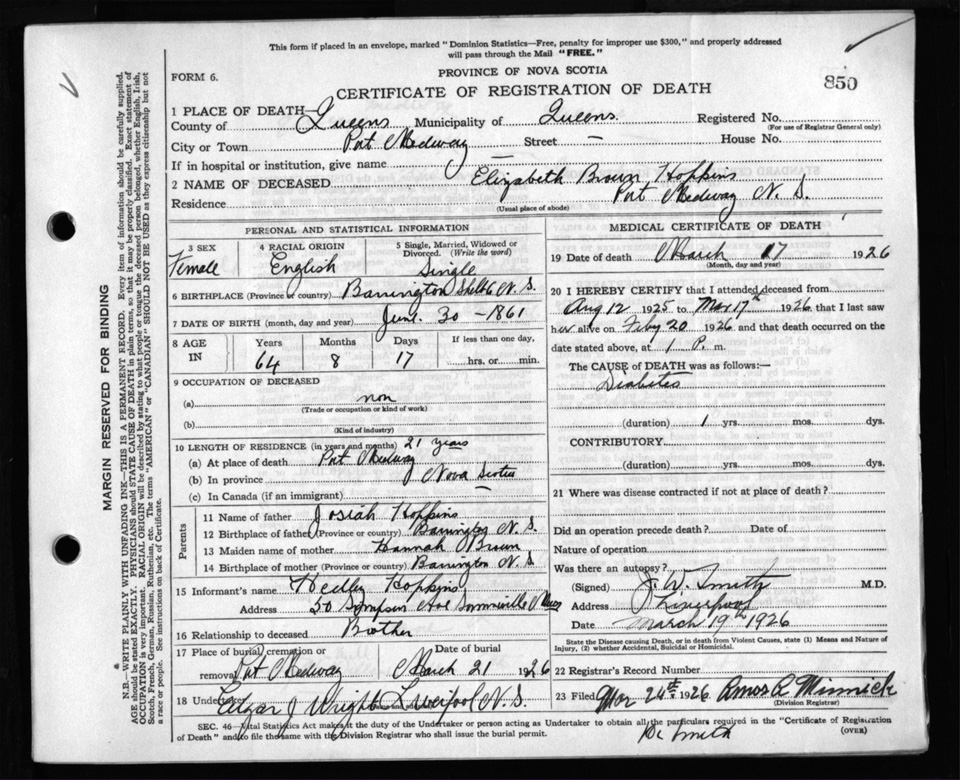 This form if placed in an envelope, marked "Dominion Statistics—Free, penalty for improper use $300," and properly addressed
will pass through the Mail "FREE."
FORM 6.
PROVINCE OF NOVA SCOTIA
850
CERTIFICATE OF REGISTRATION OF DEATH
1 PLACE OF DEATH—
County of Queens Municipality of Queens. Registered No.
(For use of Registrar General only)
City or Town Port Medway Street — House No.
If in hospital or institution, give name —
2 NAME OF DECEASED Elizabeth Brown Hopkins
Residence Port Medway N. S.
(Usual place of abode)
PERSONAL AND STATISTICAL INFORMATION
3 SEX 4 RACIAL ORIGIN 5 Single, Married, Widowed or Divorced. (Write the word)
Female English Single
6 BIRTHPLACE (Province or country) Barrington Shelb N. S.
7 DATE OF BIRTH (month, day and year) June. 30 - 1861
8 AGE IN Years Months Days If less than one day,
64 8 17 hrs. or min.
9 OCCUPATION OF DECEASED
(a) non
(Trade or occupation or kind of work)
(b)
(Kind of industry)
10 LENGTH OF RESIDENCE (in years and months) 21 years
(a) At place of death Port Medway
(b) In province Nova Scotia
(c) In Canada (if an immigrant) —
Parents
11 Name of father Josiah Hopkins
12 Birthplace of father (Province or country) Barrington N. S.
13 Maiden name of mother Hannah Brown
14 Birthplace of mother (Province or country) Barrington N. S
15 Informant's name Hedley Hopkins
Address 50 Simpson Ave Somerville Mass
16 Relationship to deceased Brother
17 Place of burial, cremation or removal Port Medway Date of burial March 21 1926
18 Undertaker Edgar J Wright Liverpool N. S.
MEDICAL CERTIFICATE OF DEATH
19 Date of death March 17 1926
(Month, day and year)
20 I HEREBY CERTIFY that I attended deceased from
Aug 12 1925 to Mar 17th 1926 that I last saw
her alive on Feby 20 1926 and that death occurred on the
date stated above, at 1 P. m.
The CAUSE of DEATH was as follows:—
Diabetes
(duration) 1 yrs. mos. dys.
CONTRIBUTORY
(duration) yrs. mos. dys.
21 Where was disease contracted if not at place of death?
Did an operation precede death? Date of
Nature of operation
Was there an autopsy?
(Signed) J. W. Smith M.D.
Address Liverpool
Date March 19th 1926
State the Disease causing Death, or in death from Violent Causes, state (1) Means and Nature of
Injury, (2) whether Accidental, Suicidal or Homicidal.
22 Registrar's Record Number
23 Filed Mar 24th 1926 Amos R Minnick
(Division Registrar)
SEC. 46—Vital Statistics Act makes it the duty of the Undertaker or person acting as Undertaker to obtain all the particulars required in the "Certificate of Registration
of Death" and to file the same with the Division Registrar who shall issue the burial permit.
Smith
(OVER)
MARGIN RESERVED FOR BINDING
N.B.—WRITE PLAINLY WITH UNFADING INK—THIS IS A PERMANENT RECORD. Every item of information should be carefully supplied.
AGE should be stated EXACTLY. PHYSICIANS should STATE CAUSE OF DEATH in plain terms, so that it may be properly classified. Exact statement of
OCCUPATION is very important. RACIAL ORIGIN will be described by stating to what people or tongue the deceased person belonged, whether English, Irish,
Scotch, French, German, Russian, Ruthenian, etc. The terms "AMERICAN" or "CANADIAN" SHOULD NOT BE USED as they express citizenship but not
a race or people. See instructions on back of Certificate.